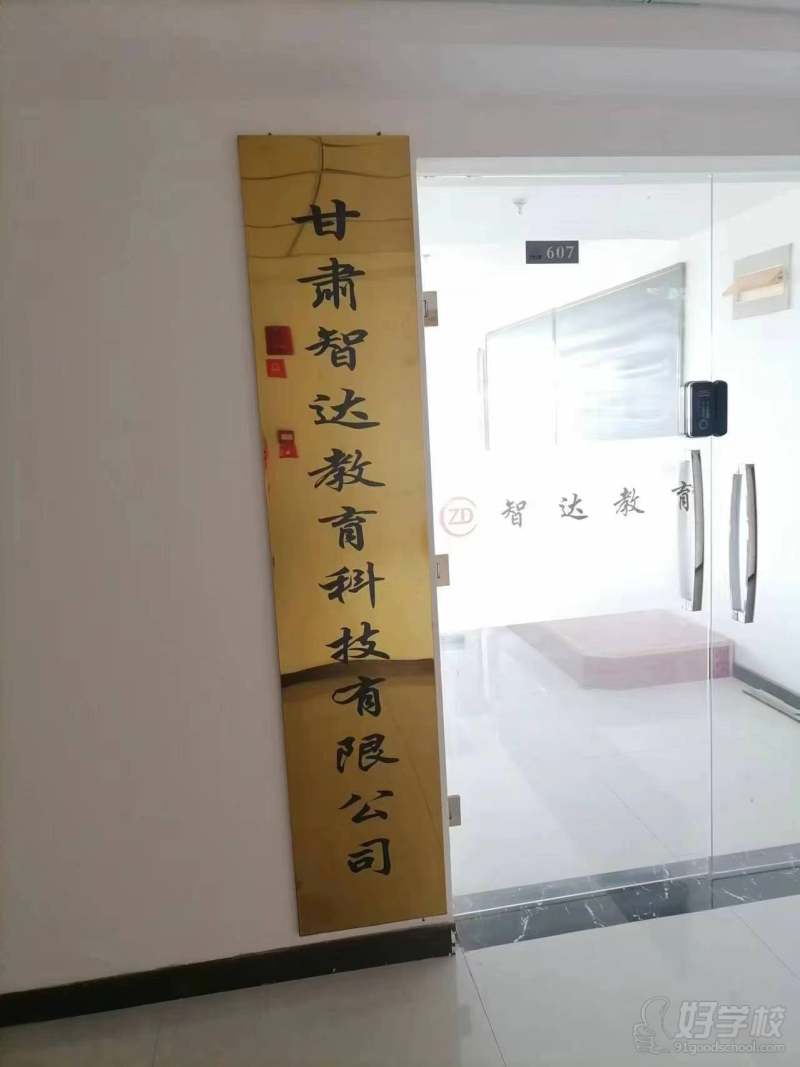 甘肃智达教育科技有限公司
607
ZD 智达教育
好学校
91goodschool.com